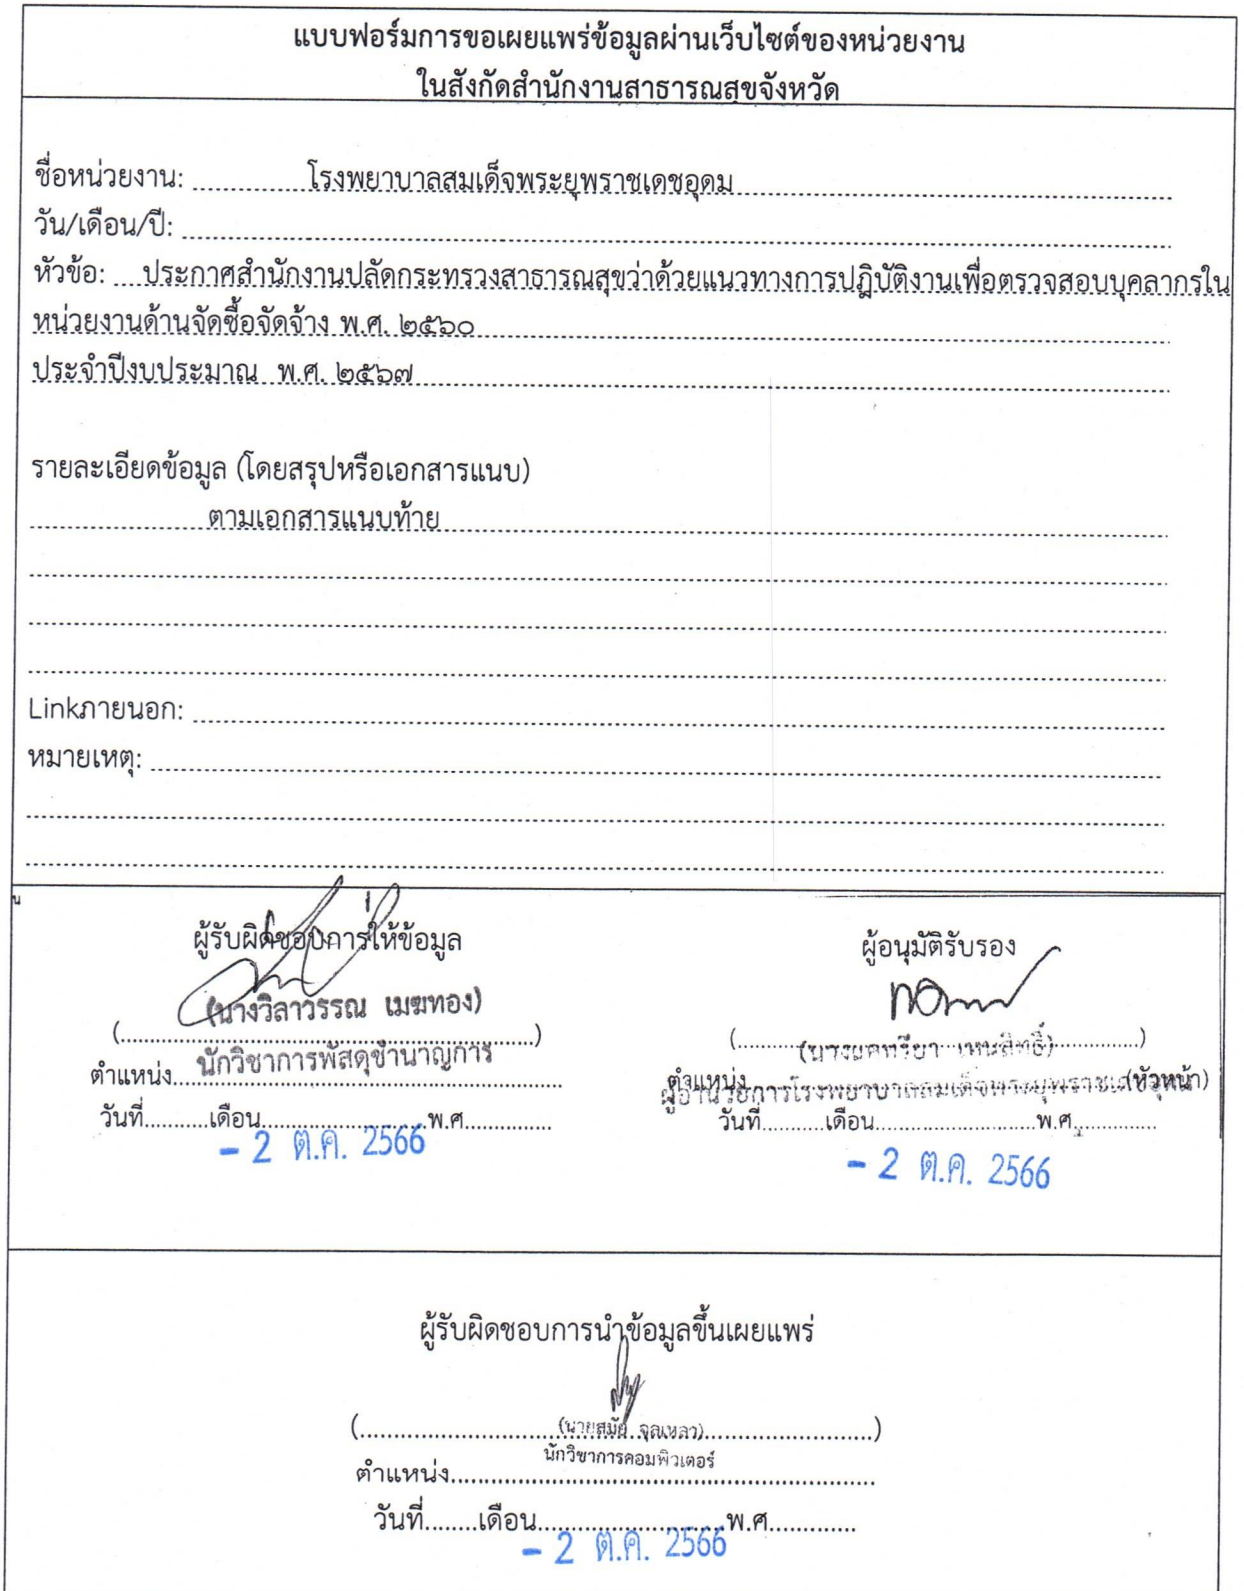 แบบฟอร์มการขอเผยแพร่ข้อมูลผ่านเว็บไซต์ของหน่วยงาน
ในสังกัดสำนักงานสาธารณสุขจังหวัด
ชื่อหน่วยงาน: โรงพยาบาลสมเด็จพระยุพราชเดชอุดม
วัน/เดือน/ปี:
หัวข้อ: ประกาศสำนักงานปลัดกระทรวงสาธารณสุขว่าด้วยแนวทางการปฏิบัติงานเพื่อตรวจสอบบุคลากรใน
หน่วยงานด้านจัดซื้อจัดจ้าง พ.ศ. ๒๕๖๐
ประจำปีงบประมาณ พ.ศ. ๒๕๖๗
รายละเอียดข้อมูล (โดยสรุปหรือเอกสารแนบ)
ตามเอกสารแนบท้าย
Linkภายนอก:
หมายเหตุ:
น
ผู้รับผิดชอบการให้ข้อมูล
(นางวิลาวรรณ เมฆทอง)
(....................)
ตำแหน่ง นักวิชาการพัสดุชำนาญการ
วันที่...........เดือน..............................พ.ศ...............
- 2 ต.ค. 2566
ผู้อนุมัติรับรอง
(....................)
ตำแหน่ง (หัวหน้า)
ผู้อำนวยการโรงพยาบาลสมเด็จพระยุพราชเดชอุดม
วันที่...........เดือน..............................พ.ศ...............
- 2 ต.ค. 2566
ผู้รับผิดชอบการนำข้อมูลขึ้นเผยแพร่
(นายสมัย จุลเหลา)
นักวิชาการคอมพิวเตอร์
ตำแหน่ง
วันที่........เดือน..............................พ.ศ.............
- 2 ต.ค. 2566